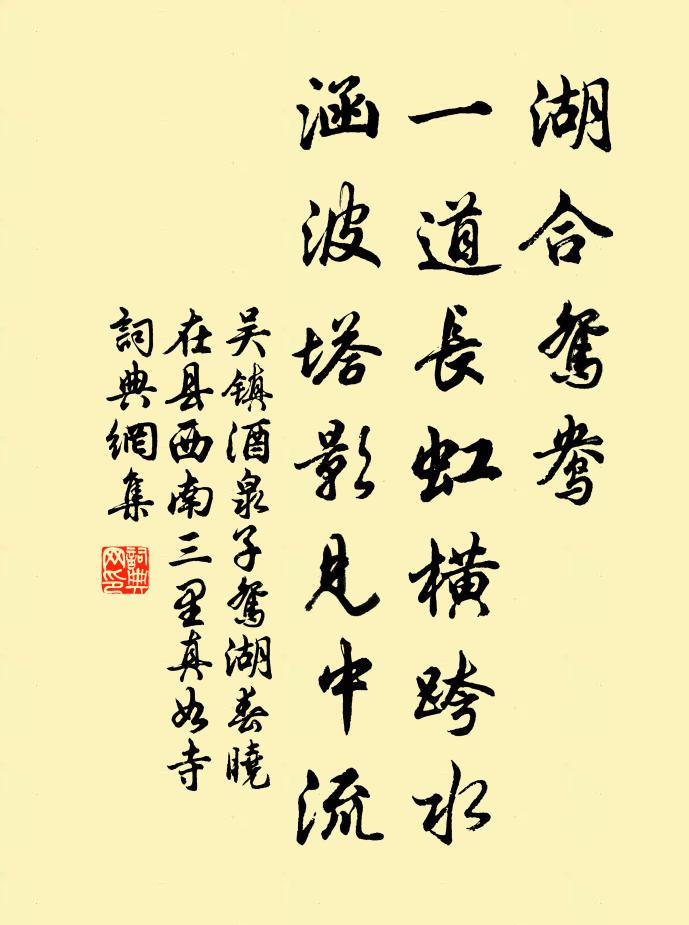 湖合鸳鸯
一道長虹橫跨水
涵波塔影見中流
吴镇酒泉子鸳湖春曉
在县西南三里真如寺
詞典網集
詞典网印